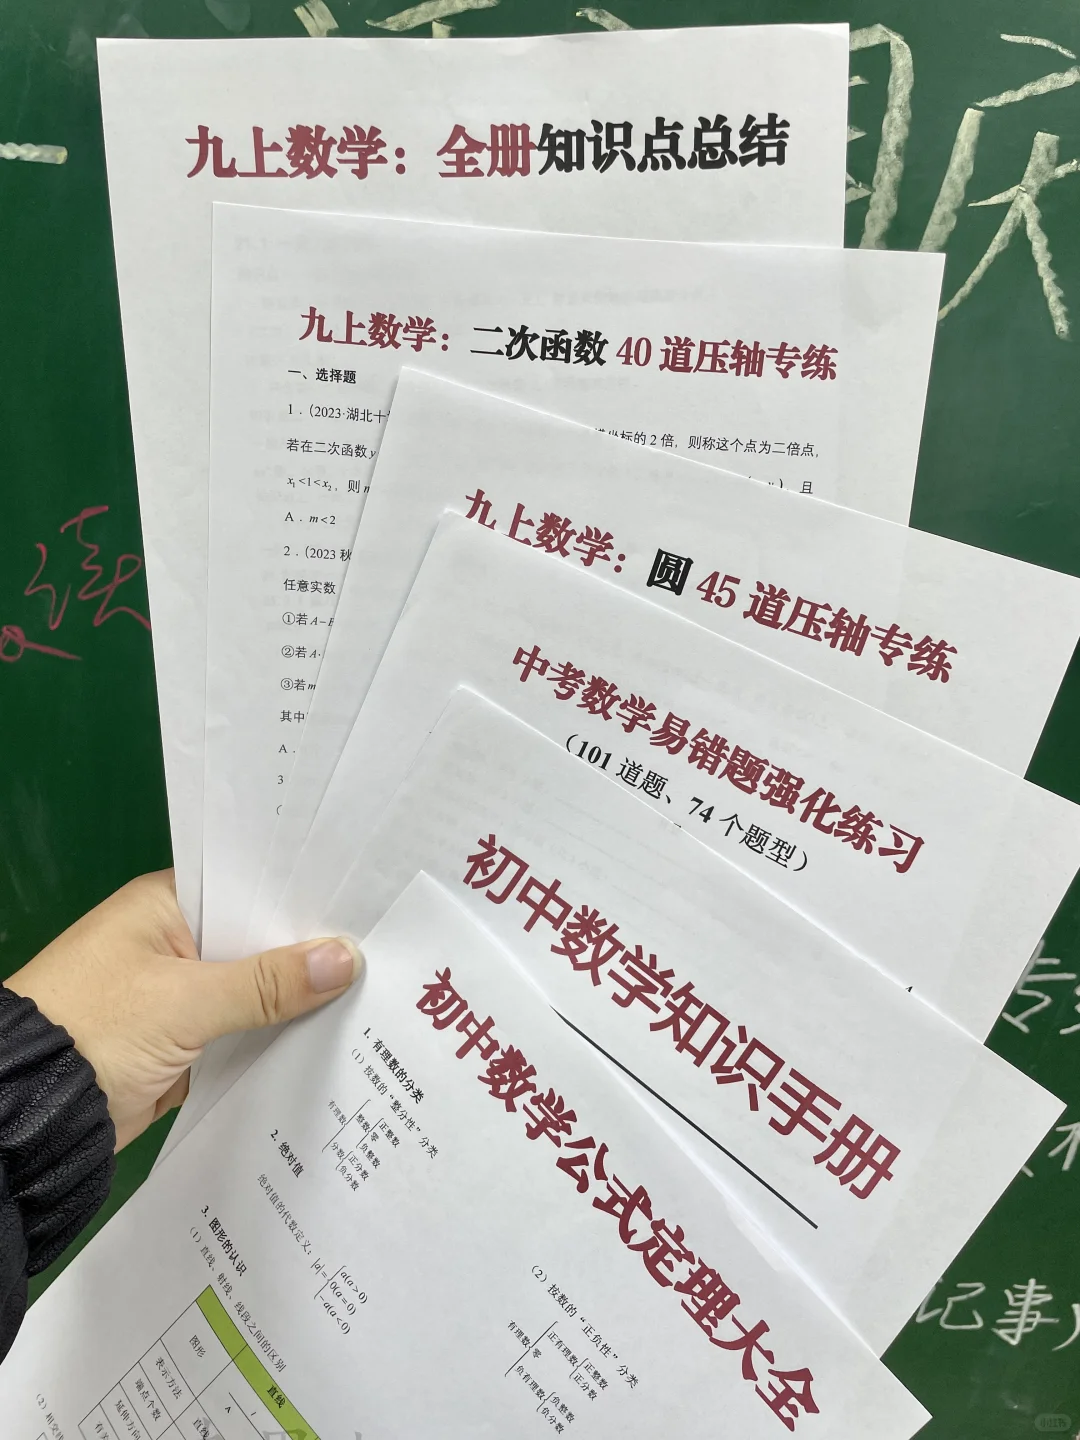 九上数学：全册知识点总结
九上数学：二次函数 40 道压轴专练
一、选择题
1．（2023·湖北十
坐标的 2 倍，则称这个点为二倍点，
若在二次函数 y
且
x₁<1<x₂，则
A．m<2
2．（2023 秋
任意实数
①若 A−
②若 A·
③若 m
其中
A．
3
九上数学：圆 45 道压轴专练
中考数学易错题强化练习
（101 道题、74 个题型）
初中数学知识手册
初中数学公式定理大全
1. 有理数的分类
（1）按数的“整分性”分类
有理数 整数 正整数 零 负整数 分数 正分数 负分数
（2）按数的“正负性”分类
有理数 正有理数 正整数 正分数 零 负有理数 负整数 负分数
2. 绝对值
绝对值的代数定义：|a|= a(a>0) 0(a=0) −a(a<0)
3. 图形的认识
（1）直线、射线、线段之间的区别
直线
图形
表示方法
端点个数
延伸方向
直线
A
读
记事